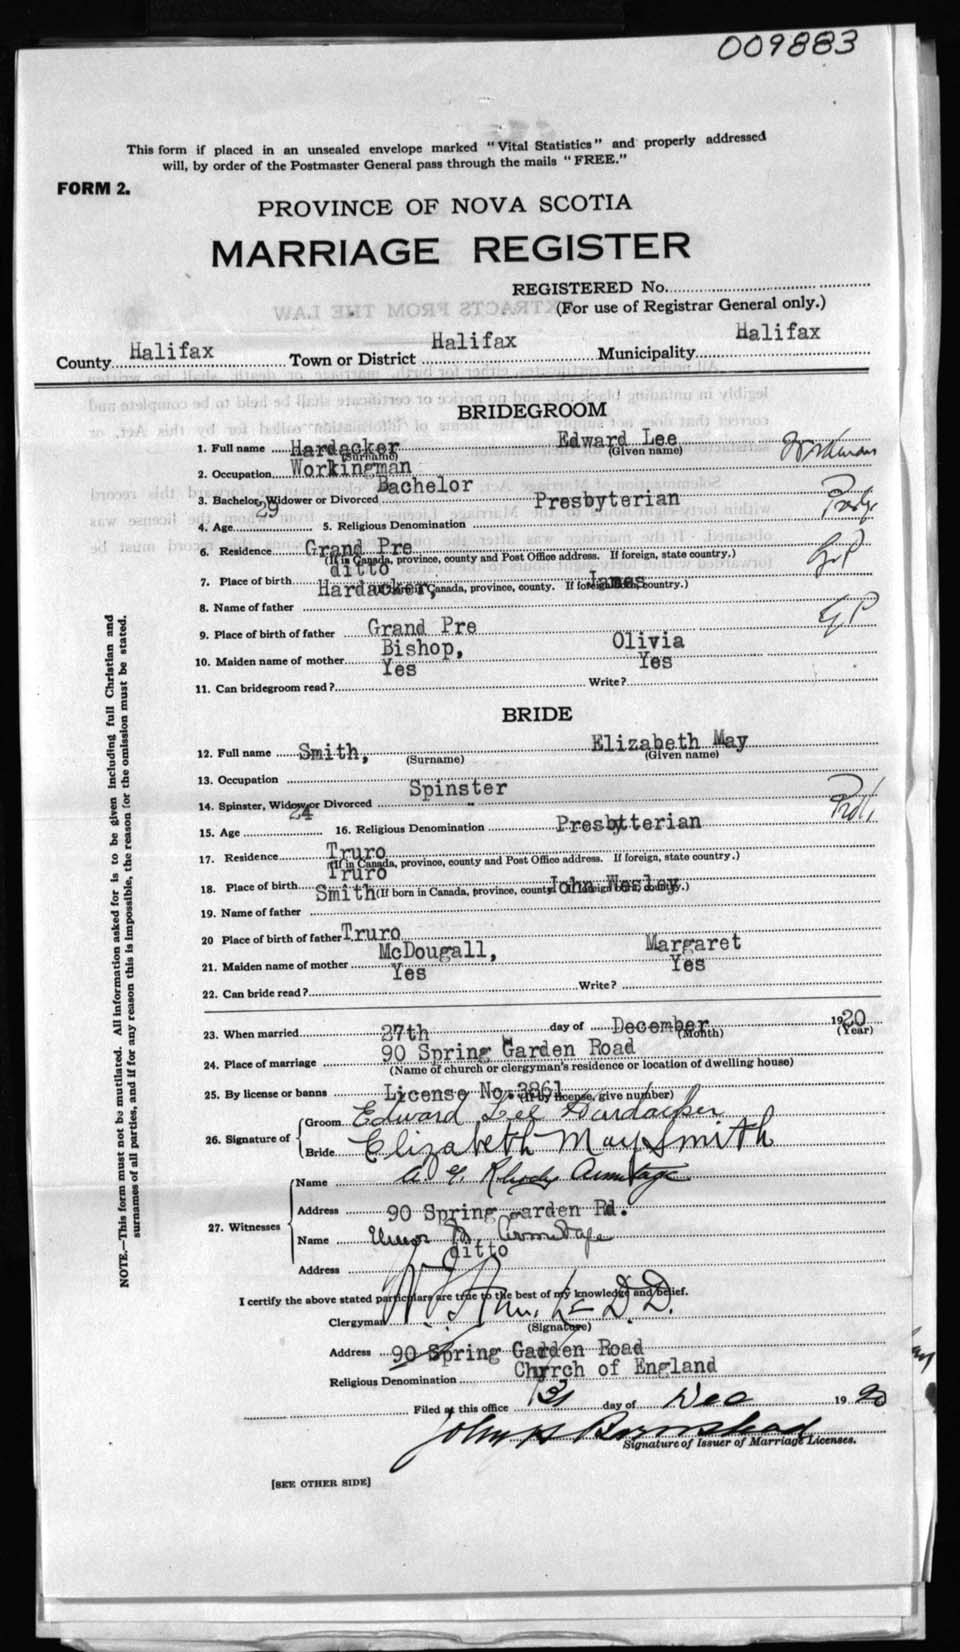 009883
This form if placed in an unsealed envelope marked "Vital Statistics" and properly addressed
will, by order of the Postmaster General pass through the mails "FREE."
FORM 2.
PROVINCE OF NOVA SCOTIA
MARRIAGE REGISTER
REGISTERED No.
(For use of Registrar General only.)
EXTRACTS FROM THE LAW
County Halifax Town or District Halifax Municipality Halifax
BRIDEGROOM
1. Full name Hardacker Edward Lee
(Surname) (Given name)
2. Occupation Workingman
3. Bachelor, Widower or Divorced Bachelor
4. Age 29 5. Religious Denomination Presbyterian
6. Residence Grand Pre
(If in Canada, province, county and Post Office address. If foreign, state country.)
7. Place of birth ditto
(If born in Canada, province, county. If foreign born, country.)
8. Name of father Hardacker, James
9. Place of birth of father Grand Pre G P
10. Maiden name of mother Bishop, Olivia
11. Can bridegroom read? Yes Write? Yes
BRIDE
12. Full name Smith, Elizabeth May
(Surname) (Given name)
13. Occupation
14. Spinster, Widow or Divorced Spinster
15. Age 24 16. Religious Denomination Presbtterian
17. Residence Truro
(If in Canada, province, county and Post Office address. If foreign, state country.)
18. Place of birth Truro
(If born in Canada, province, county. If foreign born, country.)
19. Name of father Smith John Wesley
20 Place of birth of father Truro
21. Maiden name of mother McDougall, Margaret
22. Can bride read? Yes Write? Yes
23. When married 27th day of December 1920
(Month) (Year)
24. Place of marriage 90 Spring Garden Road
(Name of church or clergyman's residence or location of dwelling house)
25. By license or banns License No. 3861
(If by license, give number)
26. Signature of Groom Edward Lee Hardacker
Bride Elizabeth May Smith
27. Witnesses
Name Armitage
Address 90 Spring Garden Rd.
Name Armitage
Address ditto
I certify the above stated particulars are true to the best of my knowledge and belief.
Clergyman D.D.
(Signature)
Address 90 Spring Gadden Road
Religious Denomination Church of England
Filed at this office 31 day of Dec 1920
John
Signature of Issuer of Marriage Licenses.
[SEE OTHER SIDE]
NOTE.—This form must not be mutilated. All information asked for is to be given including full Christian and
surnames of all parties, and if for any reason this is impossible, the reason for the omission must be stated.